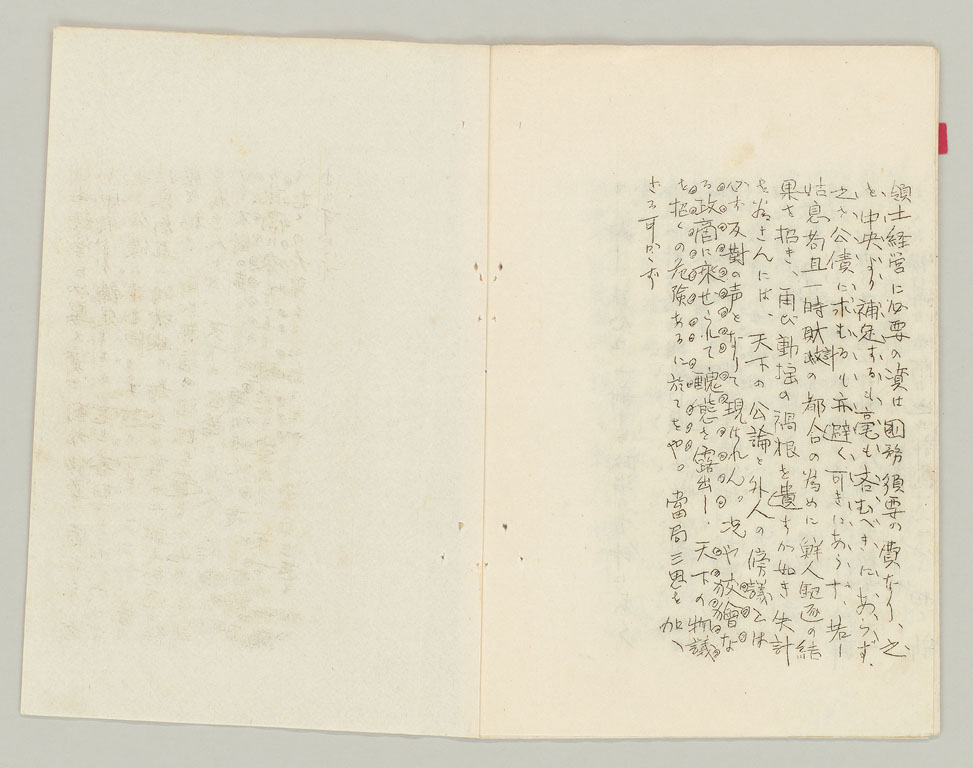 領土経営に必要の資は国務須要の費なり、之
を中央より補足するも毫も吝むべきにあらず、
之を公債に求むるも亦避く可きにあらず、若し
姑息苟且一時財政の都合の為めに鮮人駆逐の結
果を招き、再び動揺の禍根を遺すが如き失計
を為さんには、天下の公論と外人の傍議とは
必ず反対の声となりて現はれん。况や狡獪な
る政商に乗ぜられて醜態を露出し、天下の物議
を招くの危険あるに於てをや。當局三思を加へ
ざる可らず